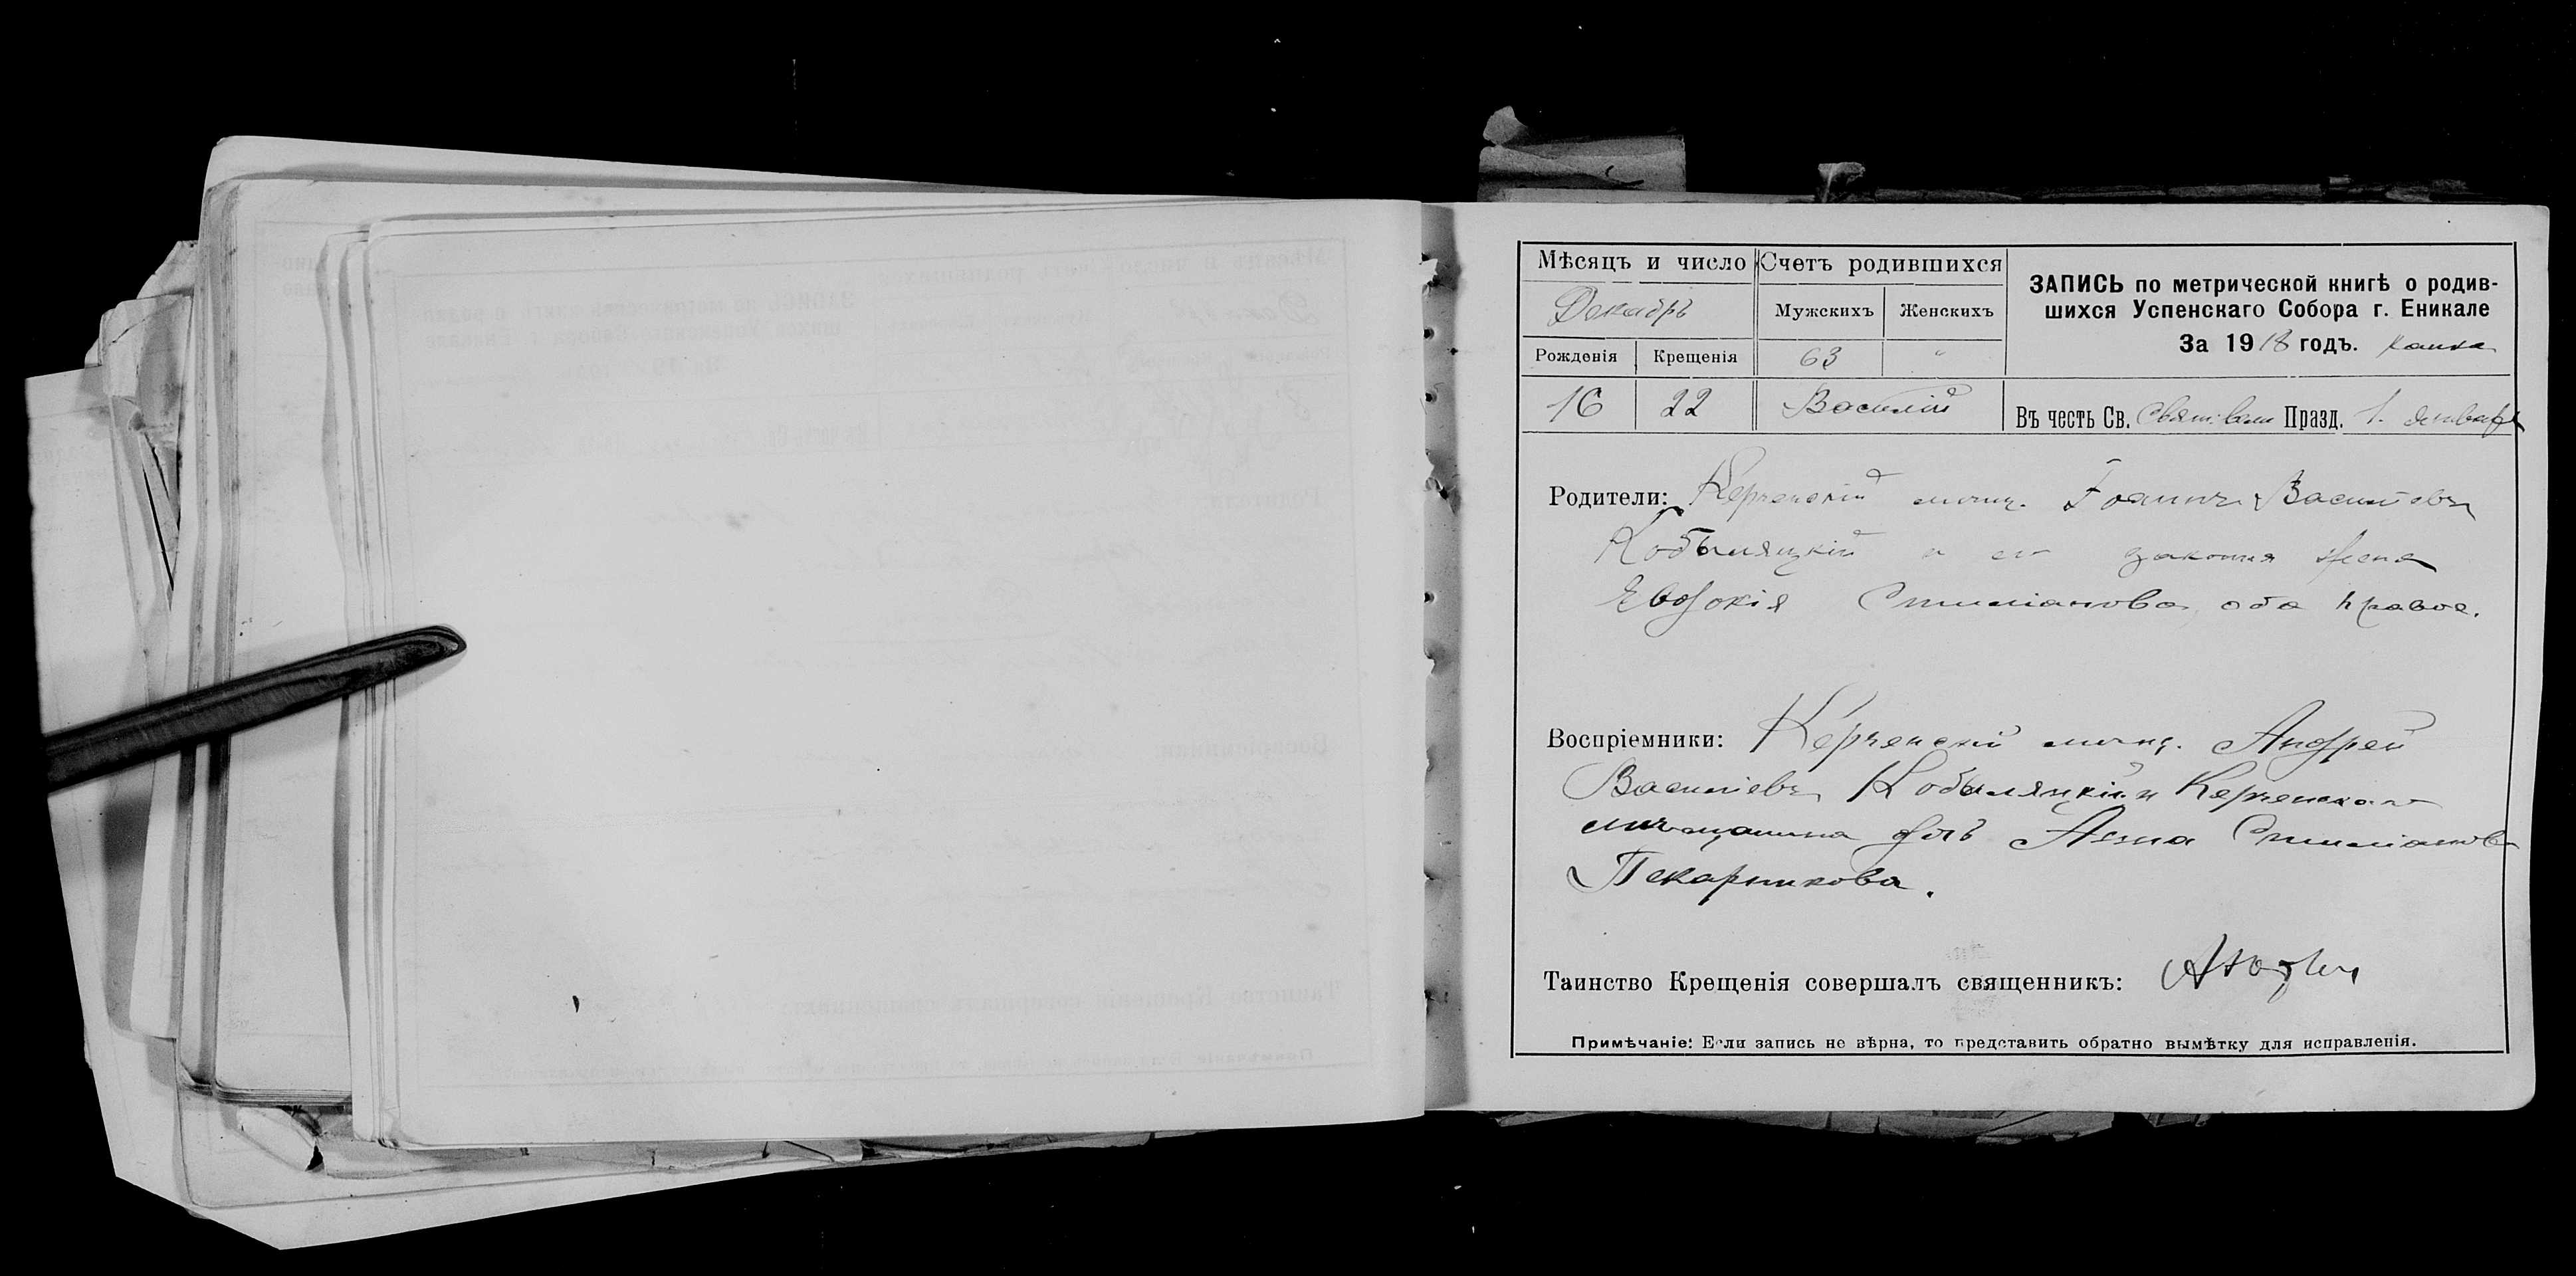 Мѣсяцъ и число
Декабрь
Рожденія Крещенія
16 22
Счетъ родившихся
Мужскихъ Женскихъ
63 "
Василій
ЗАПИСЬ по метрической книгѣ о родив-
шихся Успенскаго Собора г. Еникале
За 1918 годъ.
Въ честь Св. Празд. 1. января
Родители: Керченскій мѣщ. Іоаннъ Васильевъ
Кобыляцкій и его законная жена
Евдокія Стиліанова, оба правос.
Воспріемники: Керченскій мѣщ. Андрей
Васильевъ Кобыляцкій и Керченскаго
мѣщанина дочь Анна Стиліанова
Пекарникова.
Таинство Крещенія совершалъ священникъ:
Примѣчаніе: Если запись не вѣрна, то представить обратно вымѣтку для исправленія.